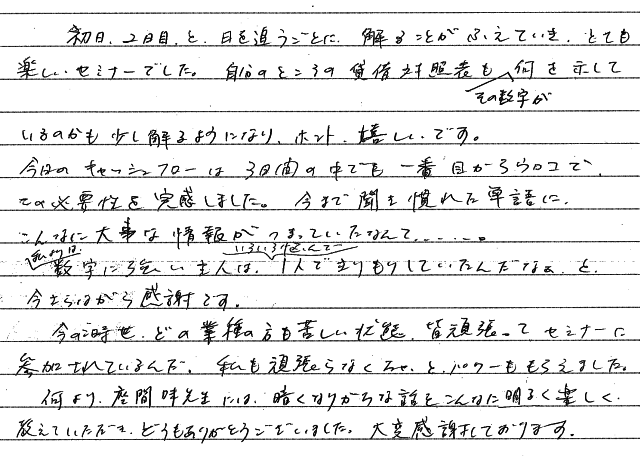 初日、2日目、と、日を追うごとに、解ることがふえていき、とても
楽しいセミナーでした。自分のところの貸借対照表も、何を示して
その数字が
いるのかも少し解るようになり、ホント、嬉しいです。
今日のキャッシュフローは3日間の中でも一番目からウロコで、
その必要性を実感しました。今まで聞き慣れた単語に、
こんなに大事な情報がつまっていたなんて……。
私よりは いろいろ悩んで
数字に強い主人は、1人できりもりしていたんだなぁ、と、
今さらながら感謝です。
今のご時世、どの業種の方も苦しい状態、皆頑張ってセミナーに
参加されているんだ、私も頑張らなくちゃ、とパワーももらえました。
何より、座間味先生には、暗くなりがちな話をこんなに明るく楽しく、
教えていただき、どうもありがとうございました。大変感謝しております。